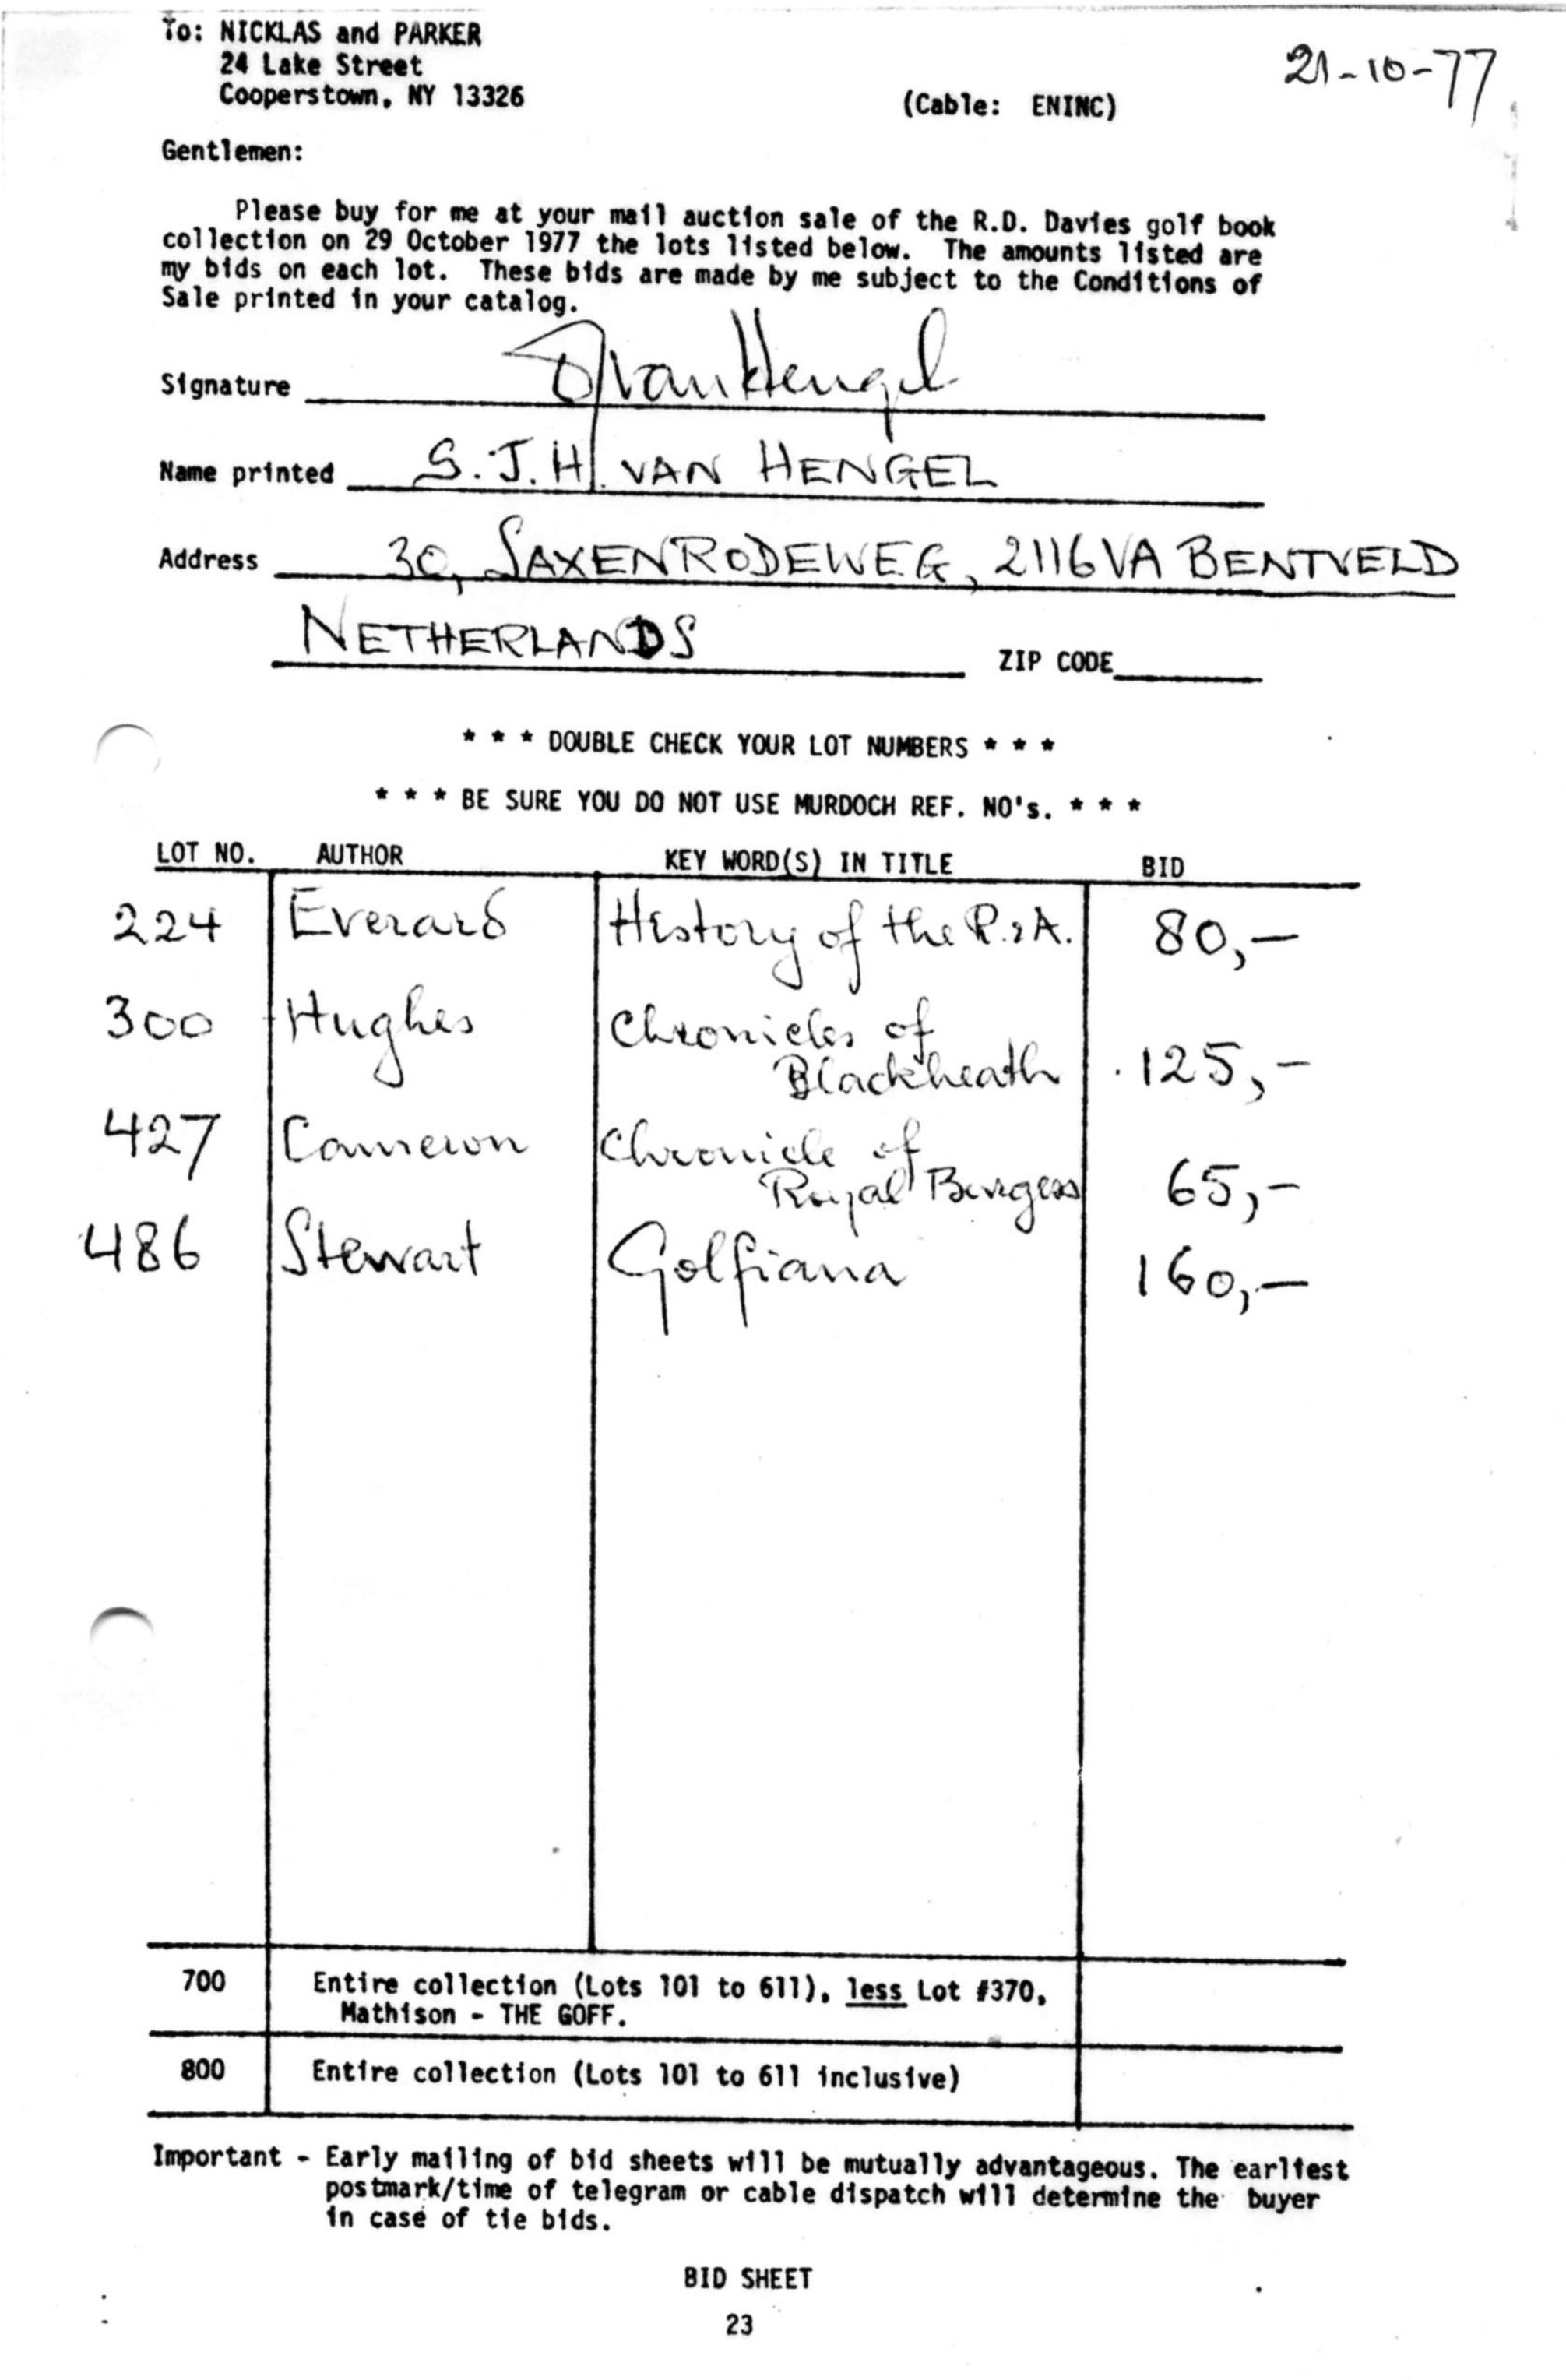 To: NICKLAS and PARKER
24 Lake Street
Cooperstown, NY 13326
21-10-77
(Cable: ENINC)
Gentlemen:
Please buy for me at your mail auction sale of the R.D. Davies golf book
collection on 29 October 1977 the lots listed below. The amounts listed are
my bids on each lot. These bids are made by me subject to the Conditions of
Sale printed in your catalog.
Signature SJvanHengel
Name printed S.J.H. VAN HENGEL
Address 30, SAXENRODEWEG, 2116VA BENTVELD
NETHERLANDS ZIP CODE
* * * DOUBLE CHECK YOUR LOT NUMBERS * * *
* * * BE SURE YOU DO NOT USE MURDOCH REF. NO's. * * *
LOT NO. AUTHOR KEY WORD(S) IN TITLE BID
224 Everard History of the R.&A. 80,-
300 Hughes Chronicles of
Blackheath 125,-
427 Cameron Chronicle of
Royal Burgess 65,-
486 Stewart Golfiana 160,-
700 Entire collection (Lots 101 to 611), less Lot #370,
Mathison - THE GOFF.
800 Entire collection (Lots 101 to 611 inclusive)
Important - Early mailing of bid sheets will be mutually advantageous. The earliest
postmark/time of telegram or cable dispatch will determine the buyer
in case of tie bids.
BID SHEET
23